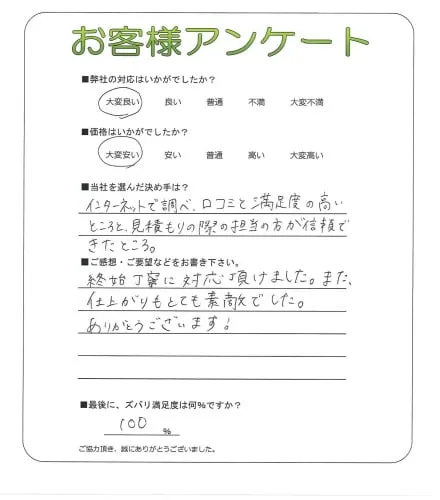 お客様アンケート
■弊社の対応はいかがでしたか？
大変良い 良い 普通 不満 大変不満
■価格はいかがでしたか？
大変安い 安い 普通 高い 大変高い
■当社を選んだ決め手は？
インターネットで調べ、口コミと満足度の高い
ところと、見積もりの際の担当の方が信頼で
きたところ。
■ご感想・ご要望などをお書き下さい。
終始丁寧に対応頂けました。また、
仕上がりもとても素敵でした。
ありがとうございます！
■最後に、ズバリ満足度は何%ですか？
100 %
ご協力頂き、誠にありがとうございました。